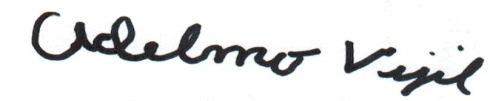 Adelmo Vigil